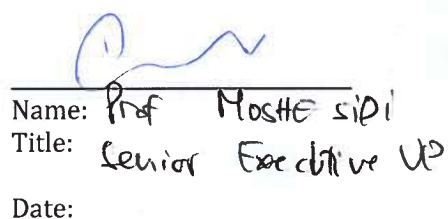 Name: Prof MOSHE SiDi
Title: Senior Executive VP
Date: